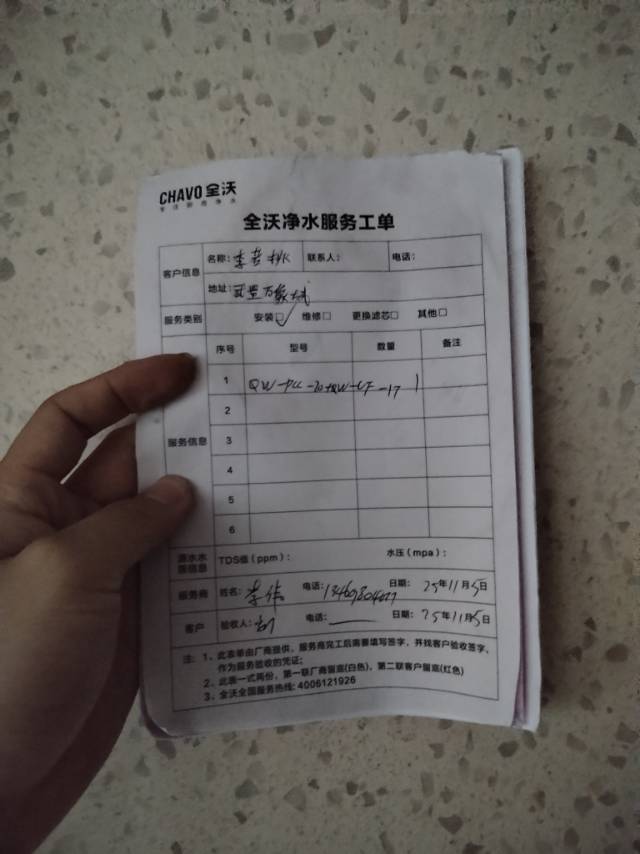 CHAVO 全沃
专注厨房净水
全沃净水服务工单
客户信息 名称： 联系人： 电话：
地址： 万象城
服务类别 安装☑ 维修□ 更换滤芯□ 其他□
服务信息 序号 型号 数量 备注
1 1
2
3
4
5
6
源水水质信息 TDS值（ppm）： 水压（mpa）：
服务商 姓名：李伟 电话： 日期：25年11月5日
客户 验收人： 电话： 日期：25年11月5日
注：1、此表单由厂商提供，服务商完工后需要填写签字，并找客户验收签字，
作为服务验收的凭证；
2、此表一式两份，第一联厂商留底(白色)，第二联客户留底(红色)
3、全沃全国服务热线：4006121926